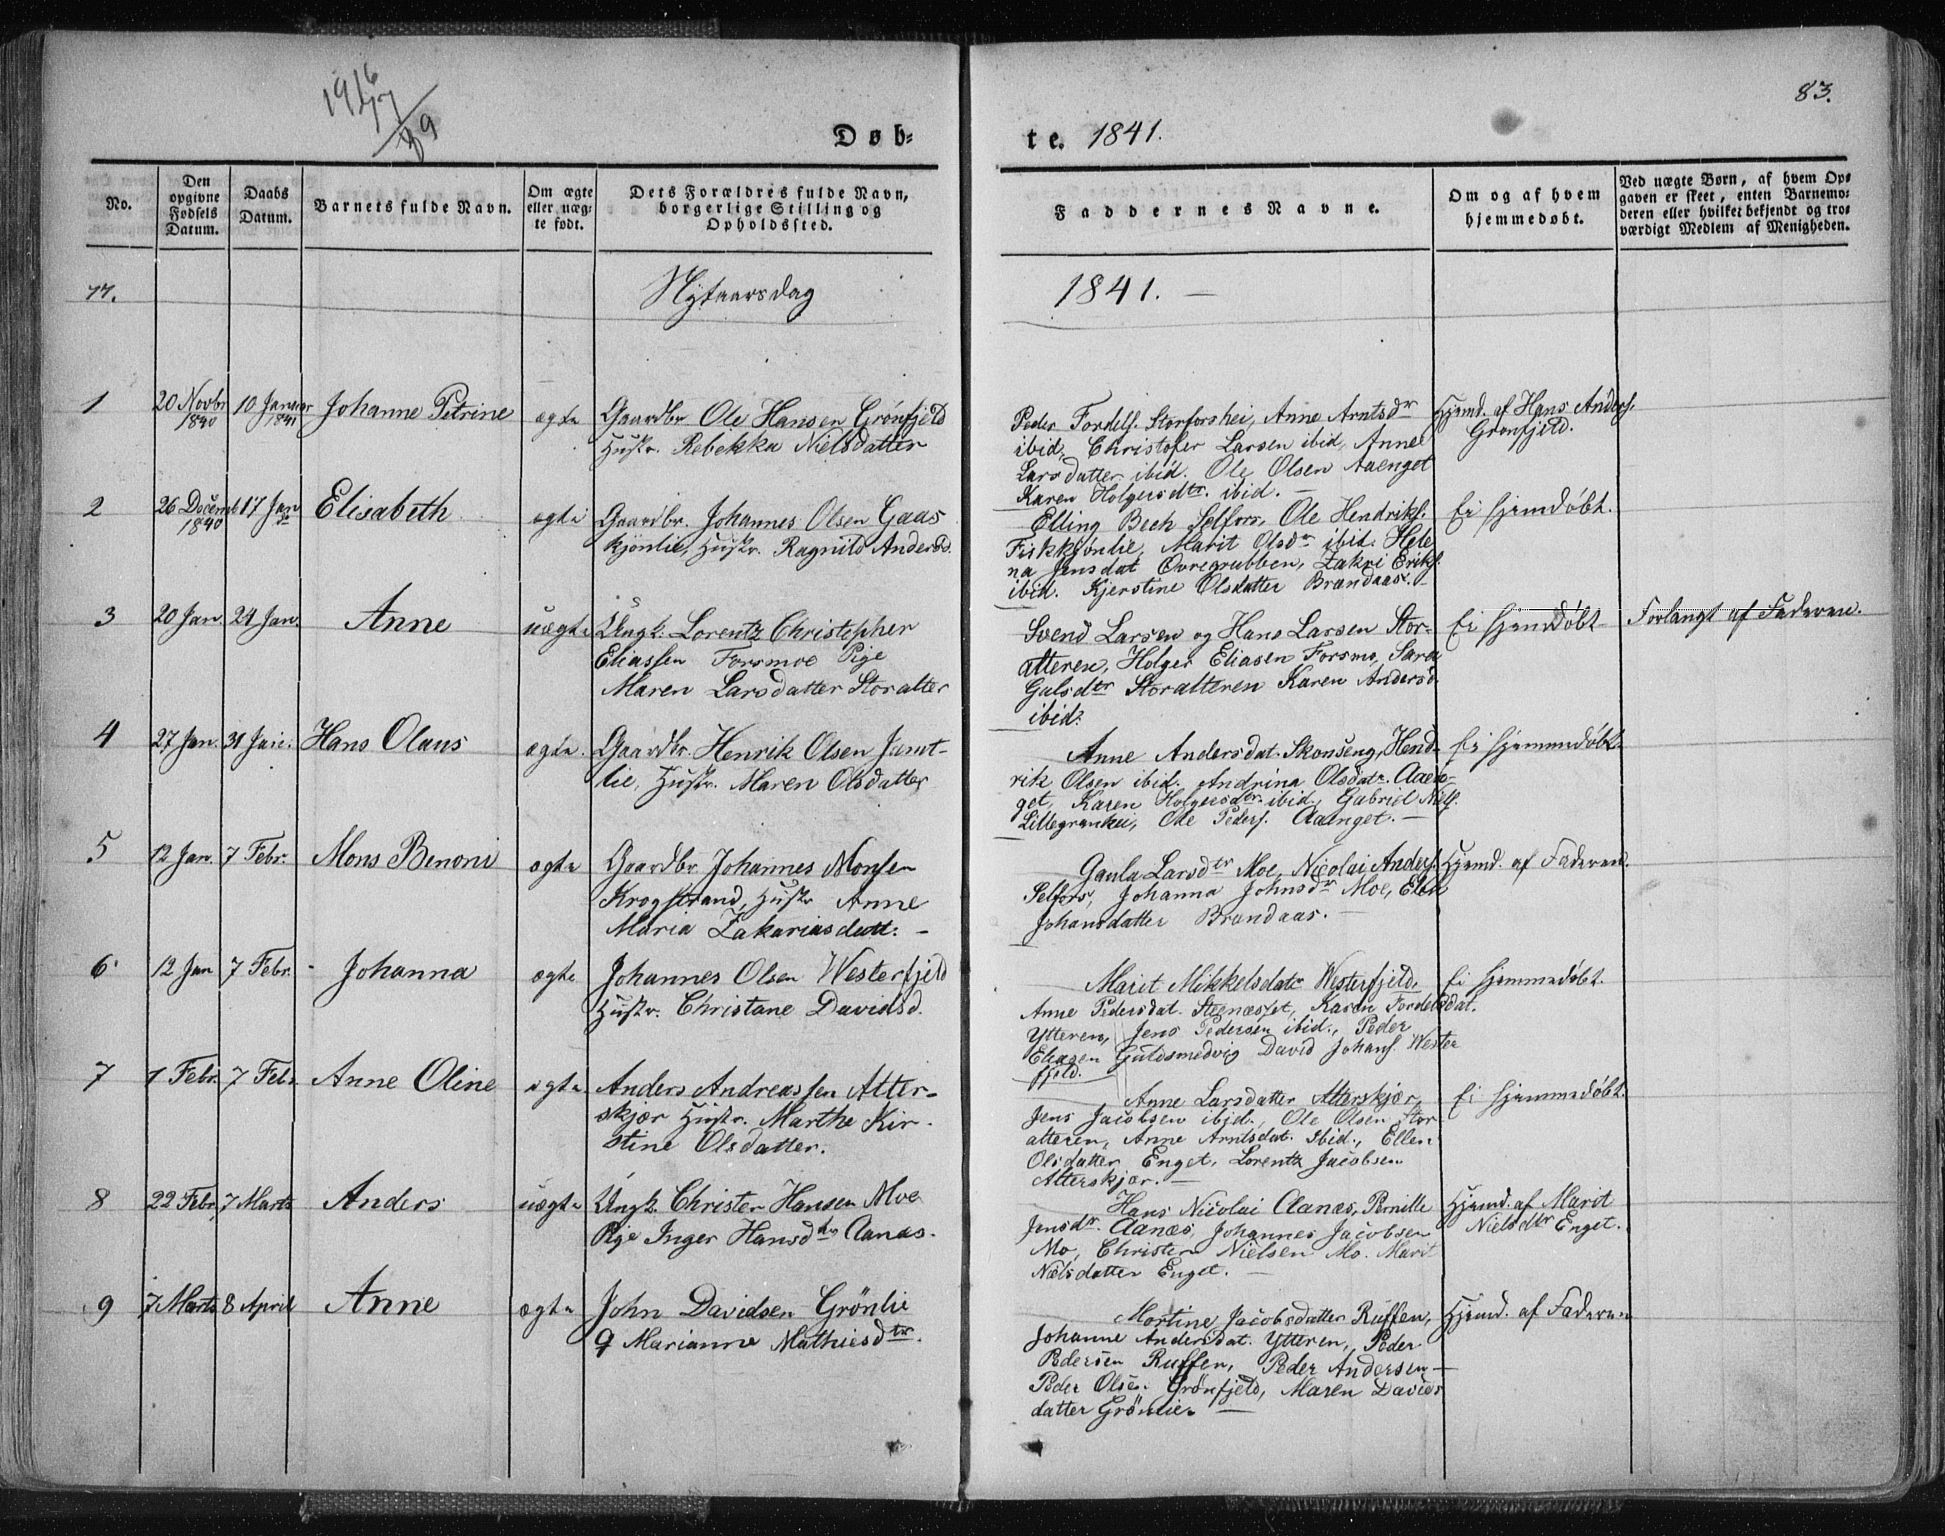 1916
47
/39
Døb-
te. 1841.
83.
No.
Den opgivne Fødsels Datum.
Daabs Datum.
Barnets fulde Navn.
Om ægte eller uægte født.
Dets Forældres fulde Navn, borgerlige Stilling og Opholdssted.
Faddernes Navne.
Om og af hvem hjemmedøbt.
Ved uægte Børn, af hvem Opgaven er skeet, enten Barnemoderen eller hvilket bekjendt og troværdigt Medlem af Menigheden.
77.
Nytaarsdag
1841. —
1
20 Novbr 1840
10 Januar 1841
Johanne Petrine
ægte
Gaardbr. Ole Hansen Grönfjeld
Hustr. Rebekka Nielsdatter
Peder Fordels. Storforshei, Anne Arntsdr
ibid, Christofer Larsen ibid, Anne
Larsdatter ibid. Ole Olsen Aaenget
Karen Holgersdtr. ibid. —
Hjemd. af Hans Anders.
Grönfjeld.
2
26 Decemb 1840
17 Jan
Elisabeth
ægte
Gaardbr. Johannes Olsen Gaas
kjönlie, Hustr. Ragnild Andersd.
Elling Bech Selfors, Ole Hendriks.
Fiskkjönlie, Marit Olsdr ibid. Hele
na Jensdat Övregrubben, Zakri Eriks.
ibid. Kjerstine Olsdatter Brandaas.
Ei hjemdøbt.
3
20 Jan.
24 Jan.
Anne
uægte
Ungk. Lorentz Christopher
Eliassen Forsmoe Pige
Maren Larsdatter Storalter
Svend Larsen og Hans Larsen Stor-
alteren, Holger Eliasen Forsmo, Sara
Galsdtr Storalteren Karen Andersd.
ibid.
Ei hjemdøbt
Forlangt af Faderen.
4
27 Jan.
31 Jan.
Hans Olaus
ægte.
Gaardbr. Henrik Olsen Jamt-
lie, Hustr. Maren Olsdatter
Anne Andersdat. Skonseng, Hend-
rik Olsen ibid. Andrina Olsdatr. Aaen-
get, Karen Holgersdtr. ibid., Gabriel Niels.
Lillegranhei, Ole Peders. Aaenget. —
Ei hjemmedøbt.
5
12 Jan.
7 Febr.
Mons Benoni
ægte
Gaardbr Johannes Monsen
Krogstrand, Hustr Anne
Maria Zakariasdatt. —
Gaula Larsdtr Moe, Nicolai Anders.
Selfors, Johanna Johnsdr Moe, Elen
Johansdatter Brandaas. —
Hjemd. af Faderen.
6
12 Jan
7 Febr.
Johanna
ægte
Johannes Olsen Westerfjeld
Hustr. Christane Davidsd.
Marit Mikkelsdatr Westerfjeld,
Anne Pedersdat. Steenæsset, Karen Fordelsdat.
Ytteren, Jens Pedersen ibid., Peder
Eliasen Guldsmedvig David Johans. Wester
fjeld.
Ei hjemmedøbt.
7
1 Febr.
7 Febr
Anne Oline
ægte
Anders Andreassen Alter-
skjær Hustr. Marthe Kir-
stine Olsdatter.
Anne Larsdatter Alterskjær,
Jens Jacobsen ibid., Ole Olsen Stor
alteren, Anne Arntsdat. Ibid., Ellen
Olsdatter Enget, Lorentz Jacobsen
Alterskjær. —
Ei hjemmedøbt.
8
22 Febr.
7 Marts
Anders
uægte
Ungk. Christer Hansen Moe
Pige Inger Hansdtr Aanæs.
Hans Nicolai Aanæs, Pernille
Jensdr. Aanæs, Johannes Jacobsen
Mo, Christer Nielsen Mo. Marit
Nielsdatter Enget. —
Hjemd. af Marit
Nielsdtr Enget.
9
7 Marts
8 April
Anne
ægte
John Davidsen Grönlie
q Marianne Mathiesdtr.
Martine Jacobsdatter Ruffen,
Johanne Andersdat. Ytteren, Peder
Pedersen Ruffen, Peder Andersen —
Peder Olsen Grönfjeld, Maren Davids
datter Grönlie. —
Hjemd. af Faderen